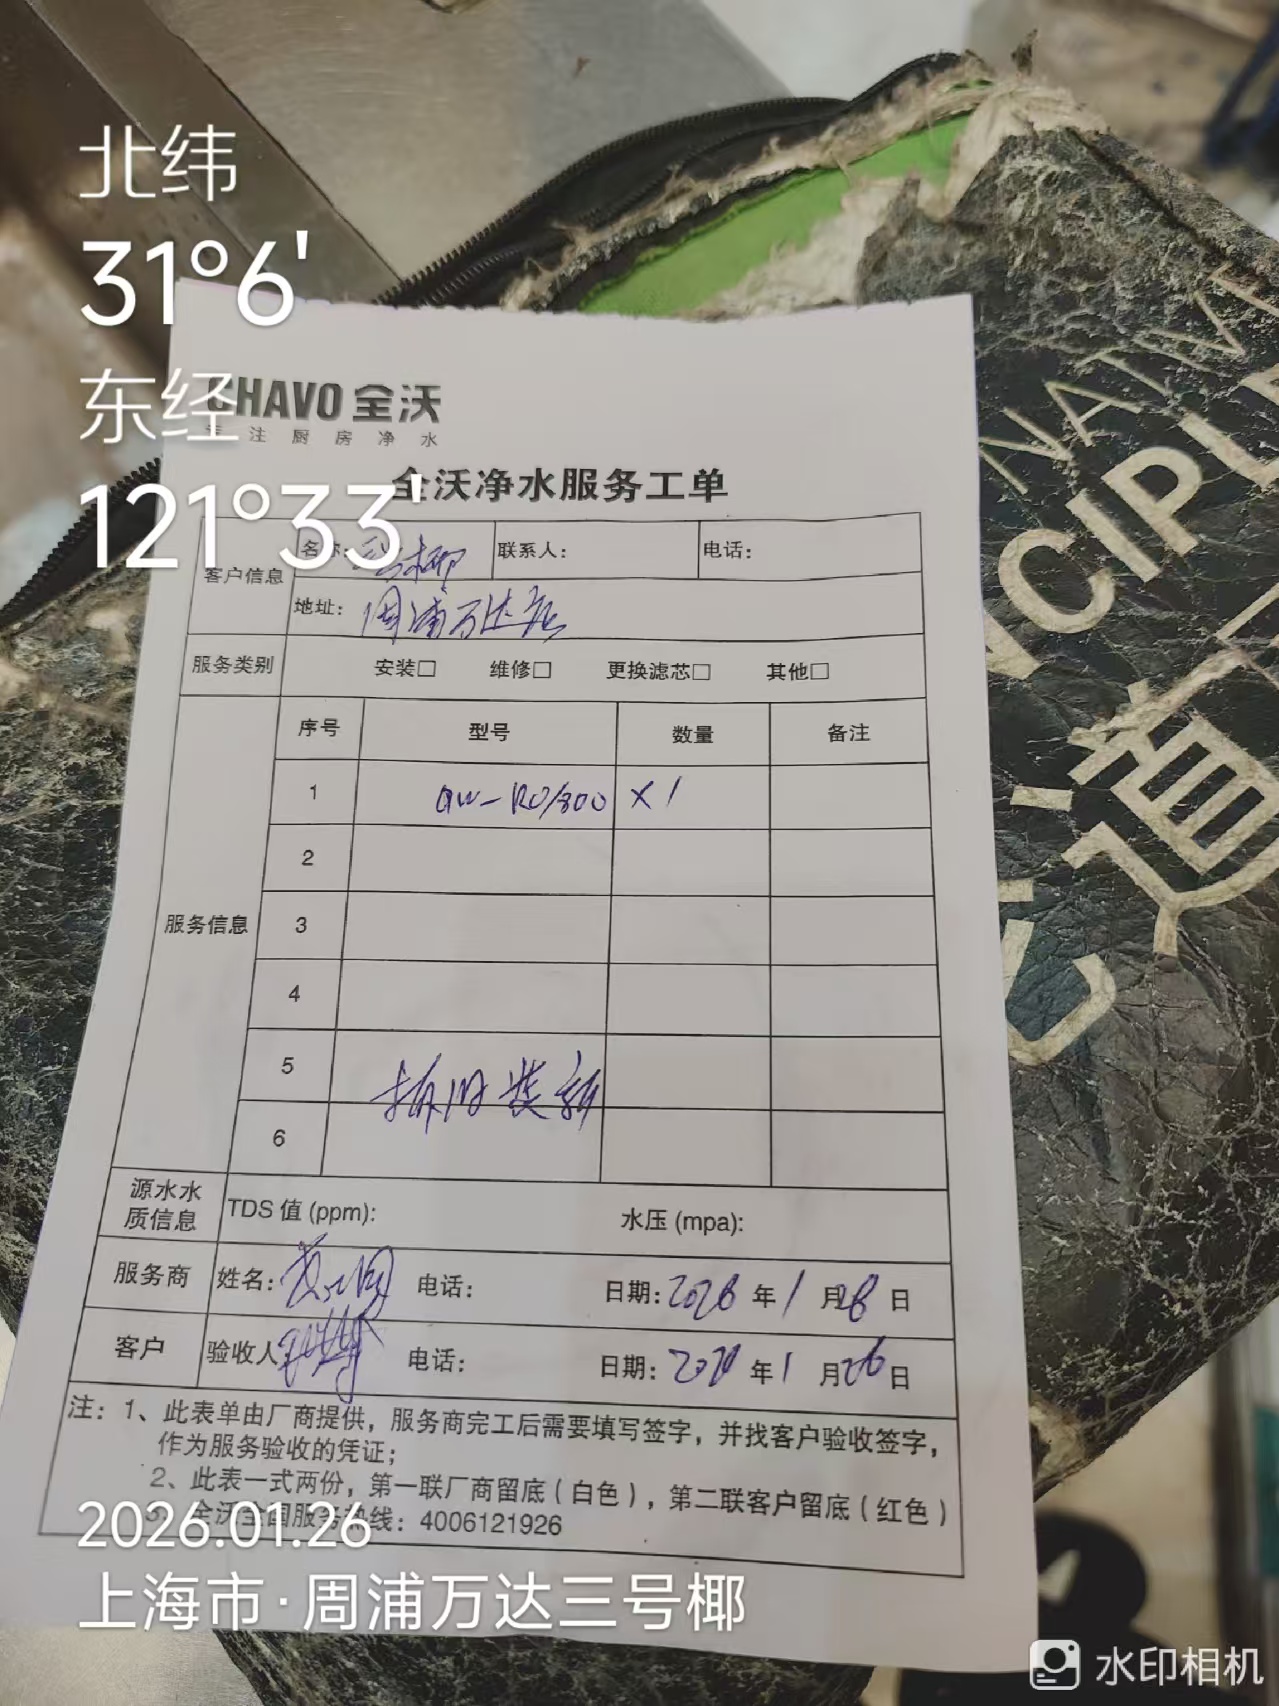 北纬
31°6'
东经
121°33'
CHAVO 全沃
专注厨房净水
全沃净水服务工单
客户信息
名称： 三号椰
联系人：
电话：
地址： 周浦万达店
服务类别
安装□ 维修□ 更换滤芯□ 其他□
服务信息
序号 型号 数量 备注
1 QW-RO/800 ×1
2
3
4
5 拆旧装新
6
源水水质信息
TDS 值 (ppm):
水压 (mpa):
服务商
姓名：
电话：
日期: 2026 年 1 月 26 日
客户
验收人
电话：
日期: 年 1 月 26 日
注：1、此表单由厂商提供，服务商完工后需要填写签字，并找客户验收签字，
作为服务验收的凭证；
2、此表一式两份，第一联厂商留底（白色），第二联客户留底（红色）
3、全沃全国服务热线：4006121926
2026.01.26
上海市·周浦万达三号椰
水印相机
NAMI
NCIPLE
道